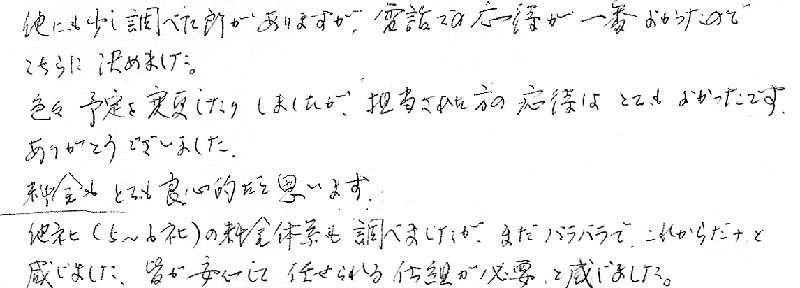 他にも少し調べた所がありますが、電話での応待が一番よかったので
こちらに決めました。
色々予定を変更したりしましたが、担当された方の応待はとてもよかったです。
ありがとうございました。
料金もとても良心的だと思います。
他社(5〜6社)の料金体系も調べましたが、まだバラバラで、これからだナ、と
感じました。皆が安心して任せられる仕組が必要、と感じました。